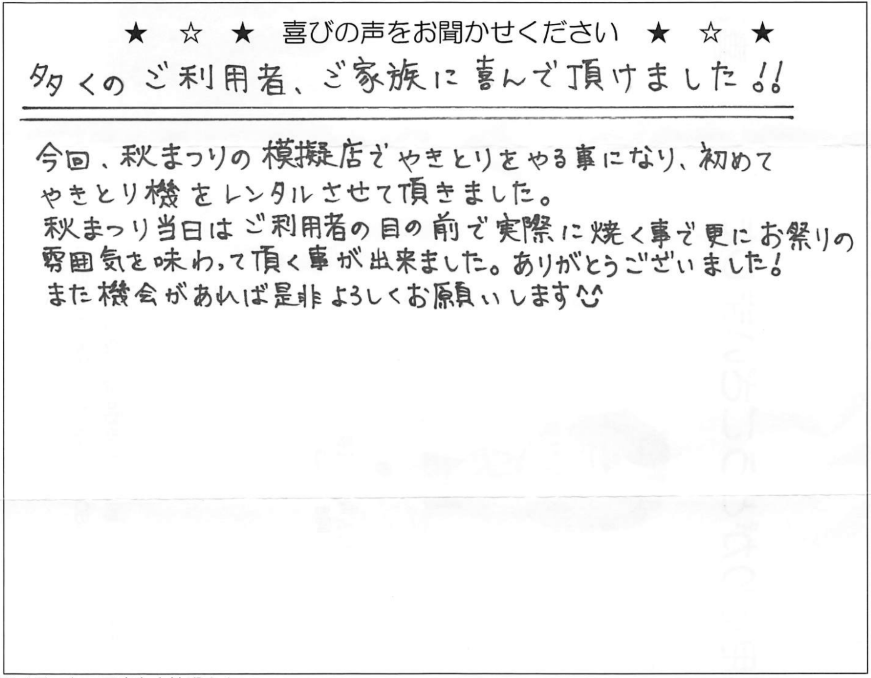 ★ ☆ ★ 喜びの声をお聞かせください ★ ☆ ★
多くの ご利用者、ご家族に喜んで頂けました!!
今回、秋まつりの模擬店でやきとりをやる事になり、初めて
やきとり機をレンタルさせて頂きました。
秋まつり当日はご利用者の目の前で実際に焼く事で更にお祭りの
雰囲気を味わって頂く事が出来ました。ありがとうございました!
また機会があれば是非よろしくお願いします